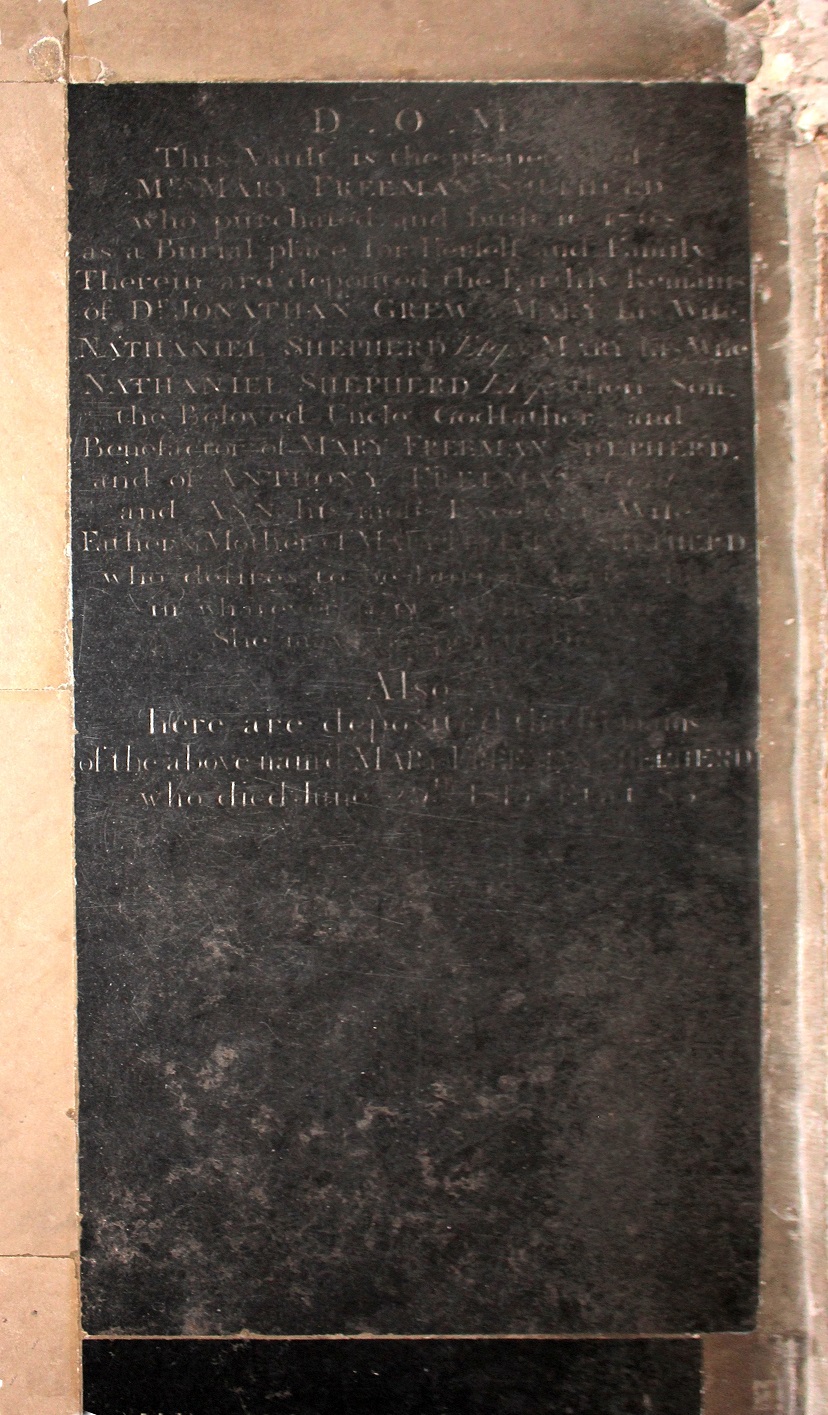 D . O . M
This Vault is the property of
Mrs MARY FREEMAN SHEPHERD
who purchased and built it
as a Burial place for Herself and Family
Therein are deposited the Earthly Remains
of Dr JONATHAN GREW, MARY his Wife,
NATHANIEL SHEPHERD Esq. MARY his Wife
NATHANIEL SHEPHERD Esq. their Son,
the Beloved Uncle Godfather and
Benefactor of MARY FREEMAN SHEPHERD,
and of ANTHONY FREEMAN Gent
and ANN his most Excellent Wife
Father & Mother of MARY FREEMAN SHEPHERD
who desires to be
in whatever
She may
Also
here are deposited the Remains
of the above nam'd MARY FREEMAN SHEPHERD
who died June